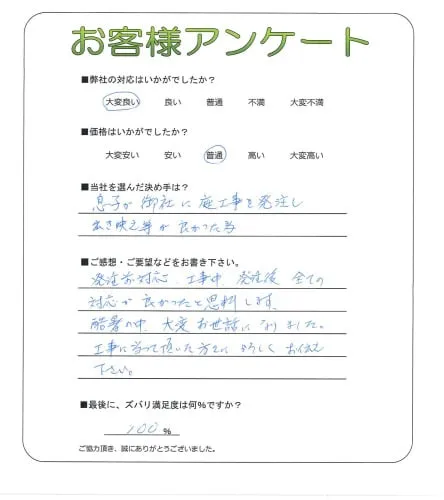 お客様アンケート
■弊社の対応はいかがでしたか？
大変良い 良い 普通 不満 大変不満
■価格はいかがでしたか？
大変安い 安い 普通 高い 大変高い
■当社を選んだ決め手は？
息子が御社に庭工事を発注し
出き映え等が良かった為
■ご感想・ご要望などをお書き下さい。
発注前対応、工事中、発注後全ての
対応が良かったと思料します。
酷暑の中、大変お世話になりました。
工事に当って頂いた方々によろしくお伝え
下さい。
■最後に、ズバリ満足度は何％ですか？
100 %
ご協力頂き、誠にありがとうございました。